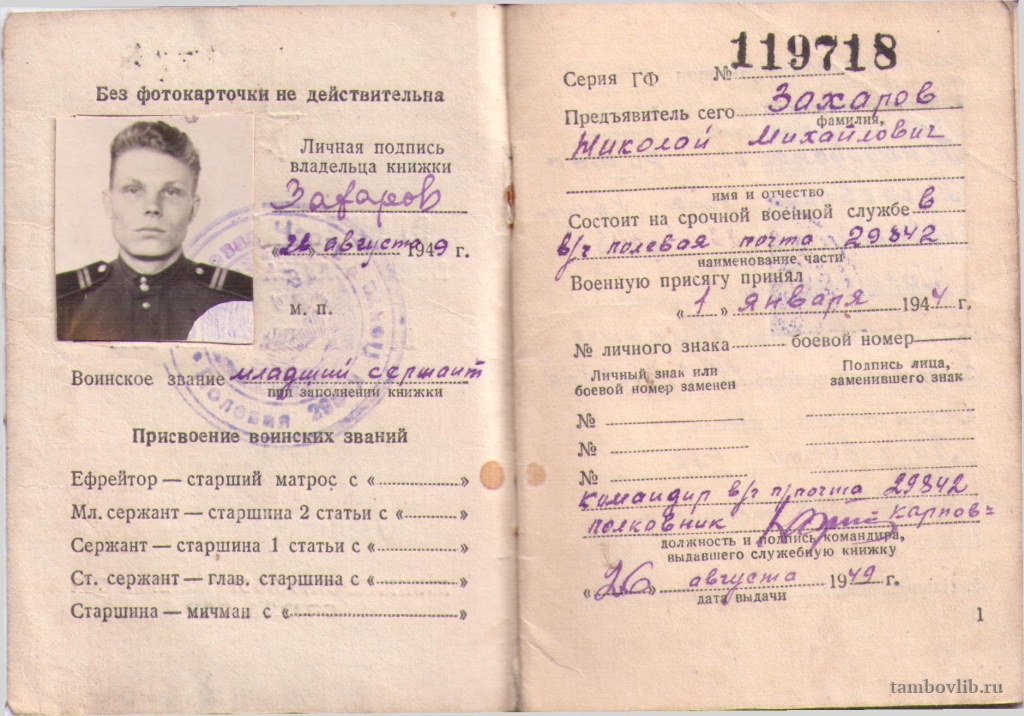 Без фотокарточки не действительна
Личная подпись
владельца книжки
Захаров
«26» августа 1949 г.
м. п.
Воинское звание младший сержант
при заполнении книжки
Присвоение воинских званий
Ефрейтор — старший матрос с « »
Мл. сержант — старшина 2 статьи с « »
Сержант — старшина 1 статьи с « »
Ст. сержант — глав. старшина с « »
Старшина — мичман с « »
Серия ГФ № 119718
Предъявитель сего Захаров
фамилия,
Николай Михайлович
имя и отчество
Состоит на срочной военной службе в
в/ч полевая почта 29842
наименование части
Военную присягу принял
«1» января 1944 г.
№ личного знака — боевой номер —
Личный знак или
боевой номер заменен
Подпись лица,
заменившего знак
№
№
№
командир в/ч п/почта 29842
полковник Карпов
должность и подпись командира,
выдавшего служебную книжку
«26» августа 1949 г.
дата выдачи
1
tambovlib.ru